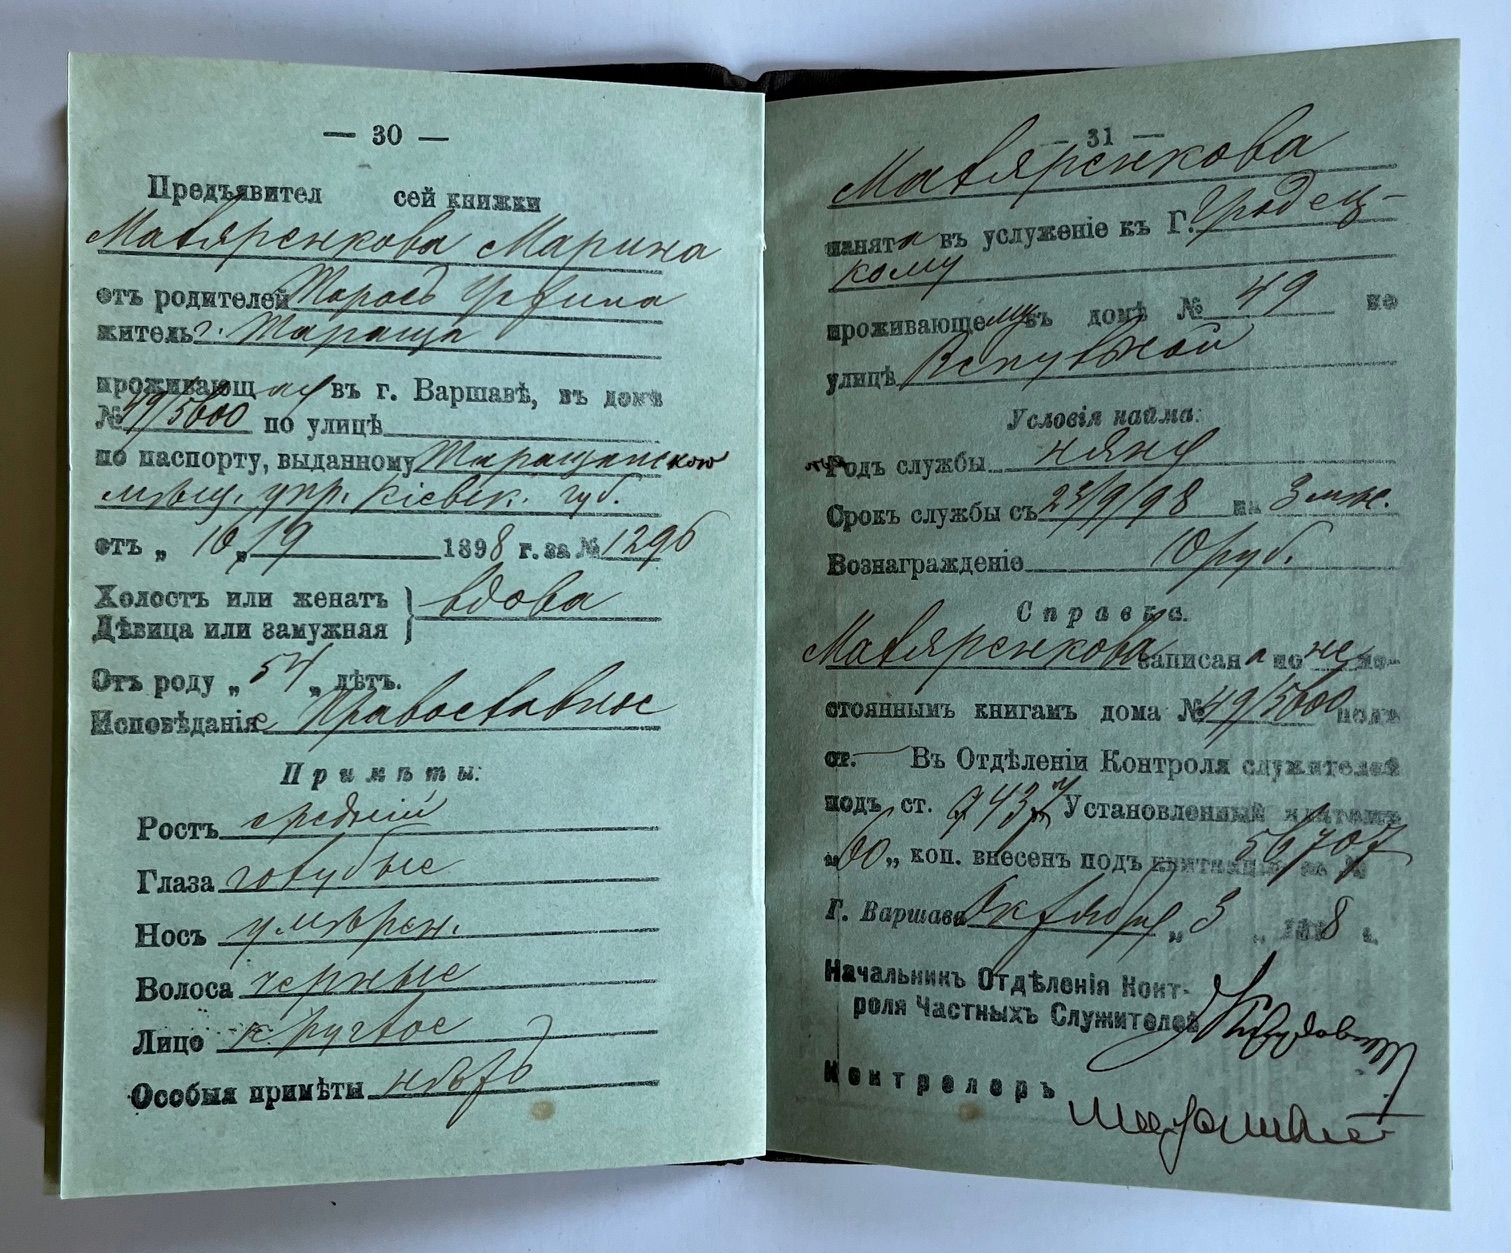 — 30 —
Предъявител сей книжки
Матяренкова Марина
отъ родителей Тарасъ
житель г. Тараща
проживающ ая въ г. Варшавѣ, въ домѣ
№ 49/5600 по улицѣ
по паспорту, выданному Таращанскою
мѣщ. упр. Кіевск. губ.
отъ „ 10 „ 19 1898 г. за № 1296
Холостъ или женатъ } вдова
Дѣвица или замужняя
Отъ роду „ 54 „ лѣтъ.
Исповѣданія Православное
Примѣты:
Ростъ средній
Глаза голубые
Носъ умѣрен.
Волоса черные
Лицо круглое
Особыя примѣты нѣтъ
— 31 —
Матяренкова
нанята въ услуженіе къ Г. Гродец-
кому
проживающему въ домѣ № 49 по
улицѣ Вспульной
Условія найма:
Родъ службы няня
Срокъ службы съ 23/9/98 на 3 мѣс.
Вознагражденіе 10 руб.
Справка.
Матяренкова записана по не по-
стояннымъ книгамъ дома № 49/5600 подъ
ст. — Въ Отдѣленіи Контроля служителей
подъ ст. 9437 Установленный платежъ
„ 60 „ коп. внесенъ подъ квитанціи за № 56707
Г. Варшава Октября „ 3 „ 1898 г.
Начальникъ Отдѣленія Конт-
роля Частныхъ Служителей
Контролеръ